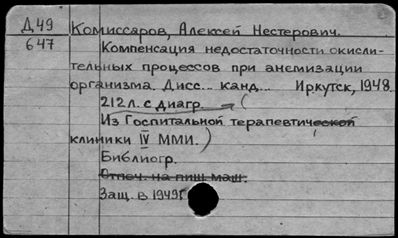 Д49 Комиссаров, Алексей Нестерович.
647 Компенсация недостаточности окисли-
тельных процессов при анемизации
организма. Дисс... канд... Иркутск, 1948.
212 л. с диагр. (
Из Госпитальной терапевтической
клиники IV ММИ.)
Библиогр.
Отпеч. на пиш. маш.
Защ. в 1949г